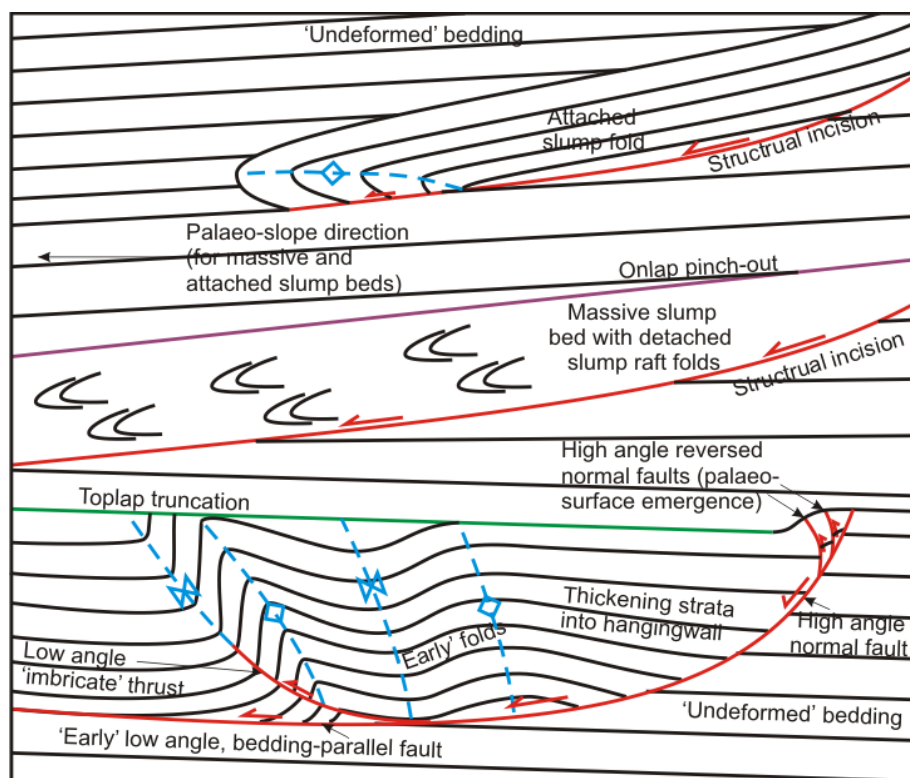 'Undeformed' bedding
Attached
slump fold
Structrual incision
Palaeo-slope direction
(for massive and
attached slump beds)
Onlap pinch-out
Massive slump
bed with detached
slump raft folds
Structrual incision
High angle reversed
normal faults (palaeo-
surface emergence)
Toplap truncation
Thickening strata
into hangingwall
Early' folds
High angle
normal fault
Low angle
'imbricate' thrust
'Undeformed' bedding
'Early' low angle, bedding-parallel fault